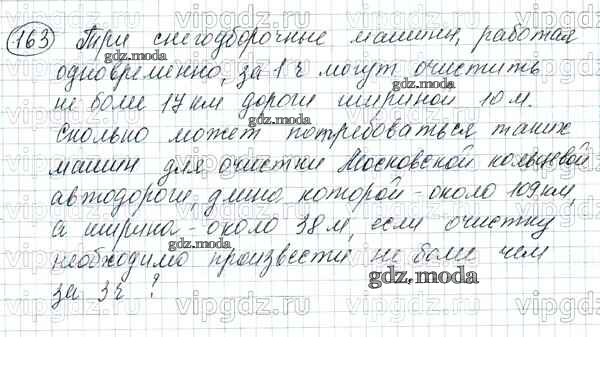 163 Три снегоуборочные машины, работая
одновременно, за 1 ч могут очистить
не более 17 км дороги шириной 10 м.
Сколько может потребоваться таких
машин для очистки Московской кольцевой
автодороги, длина которой - около 109 км,
а ширина - около 38 м, если очистку
необходимо произвести не более чем
за 3 ч ?
vipgdz.ru
gdz.moda